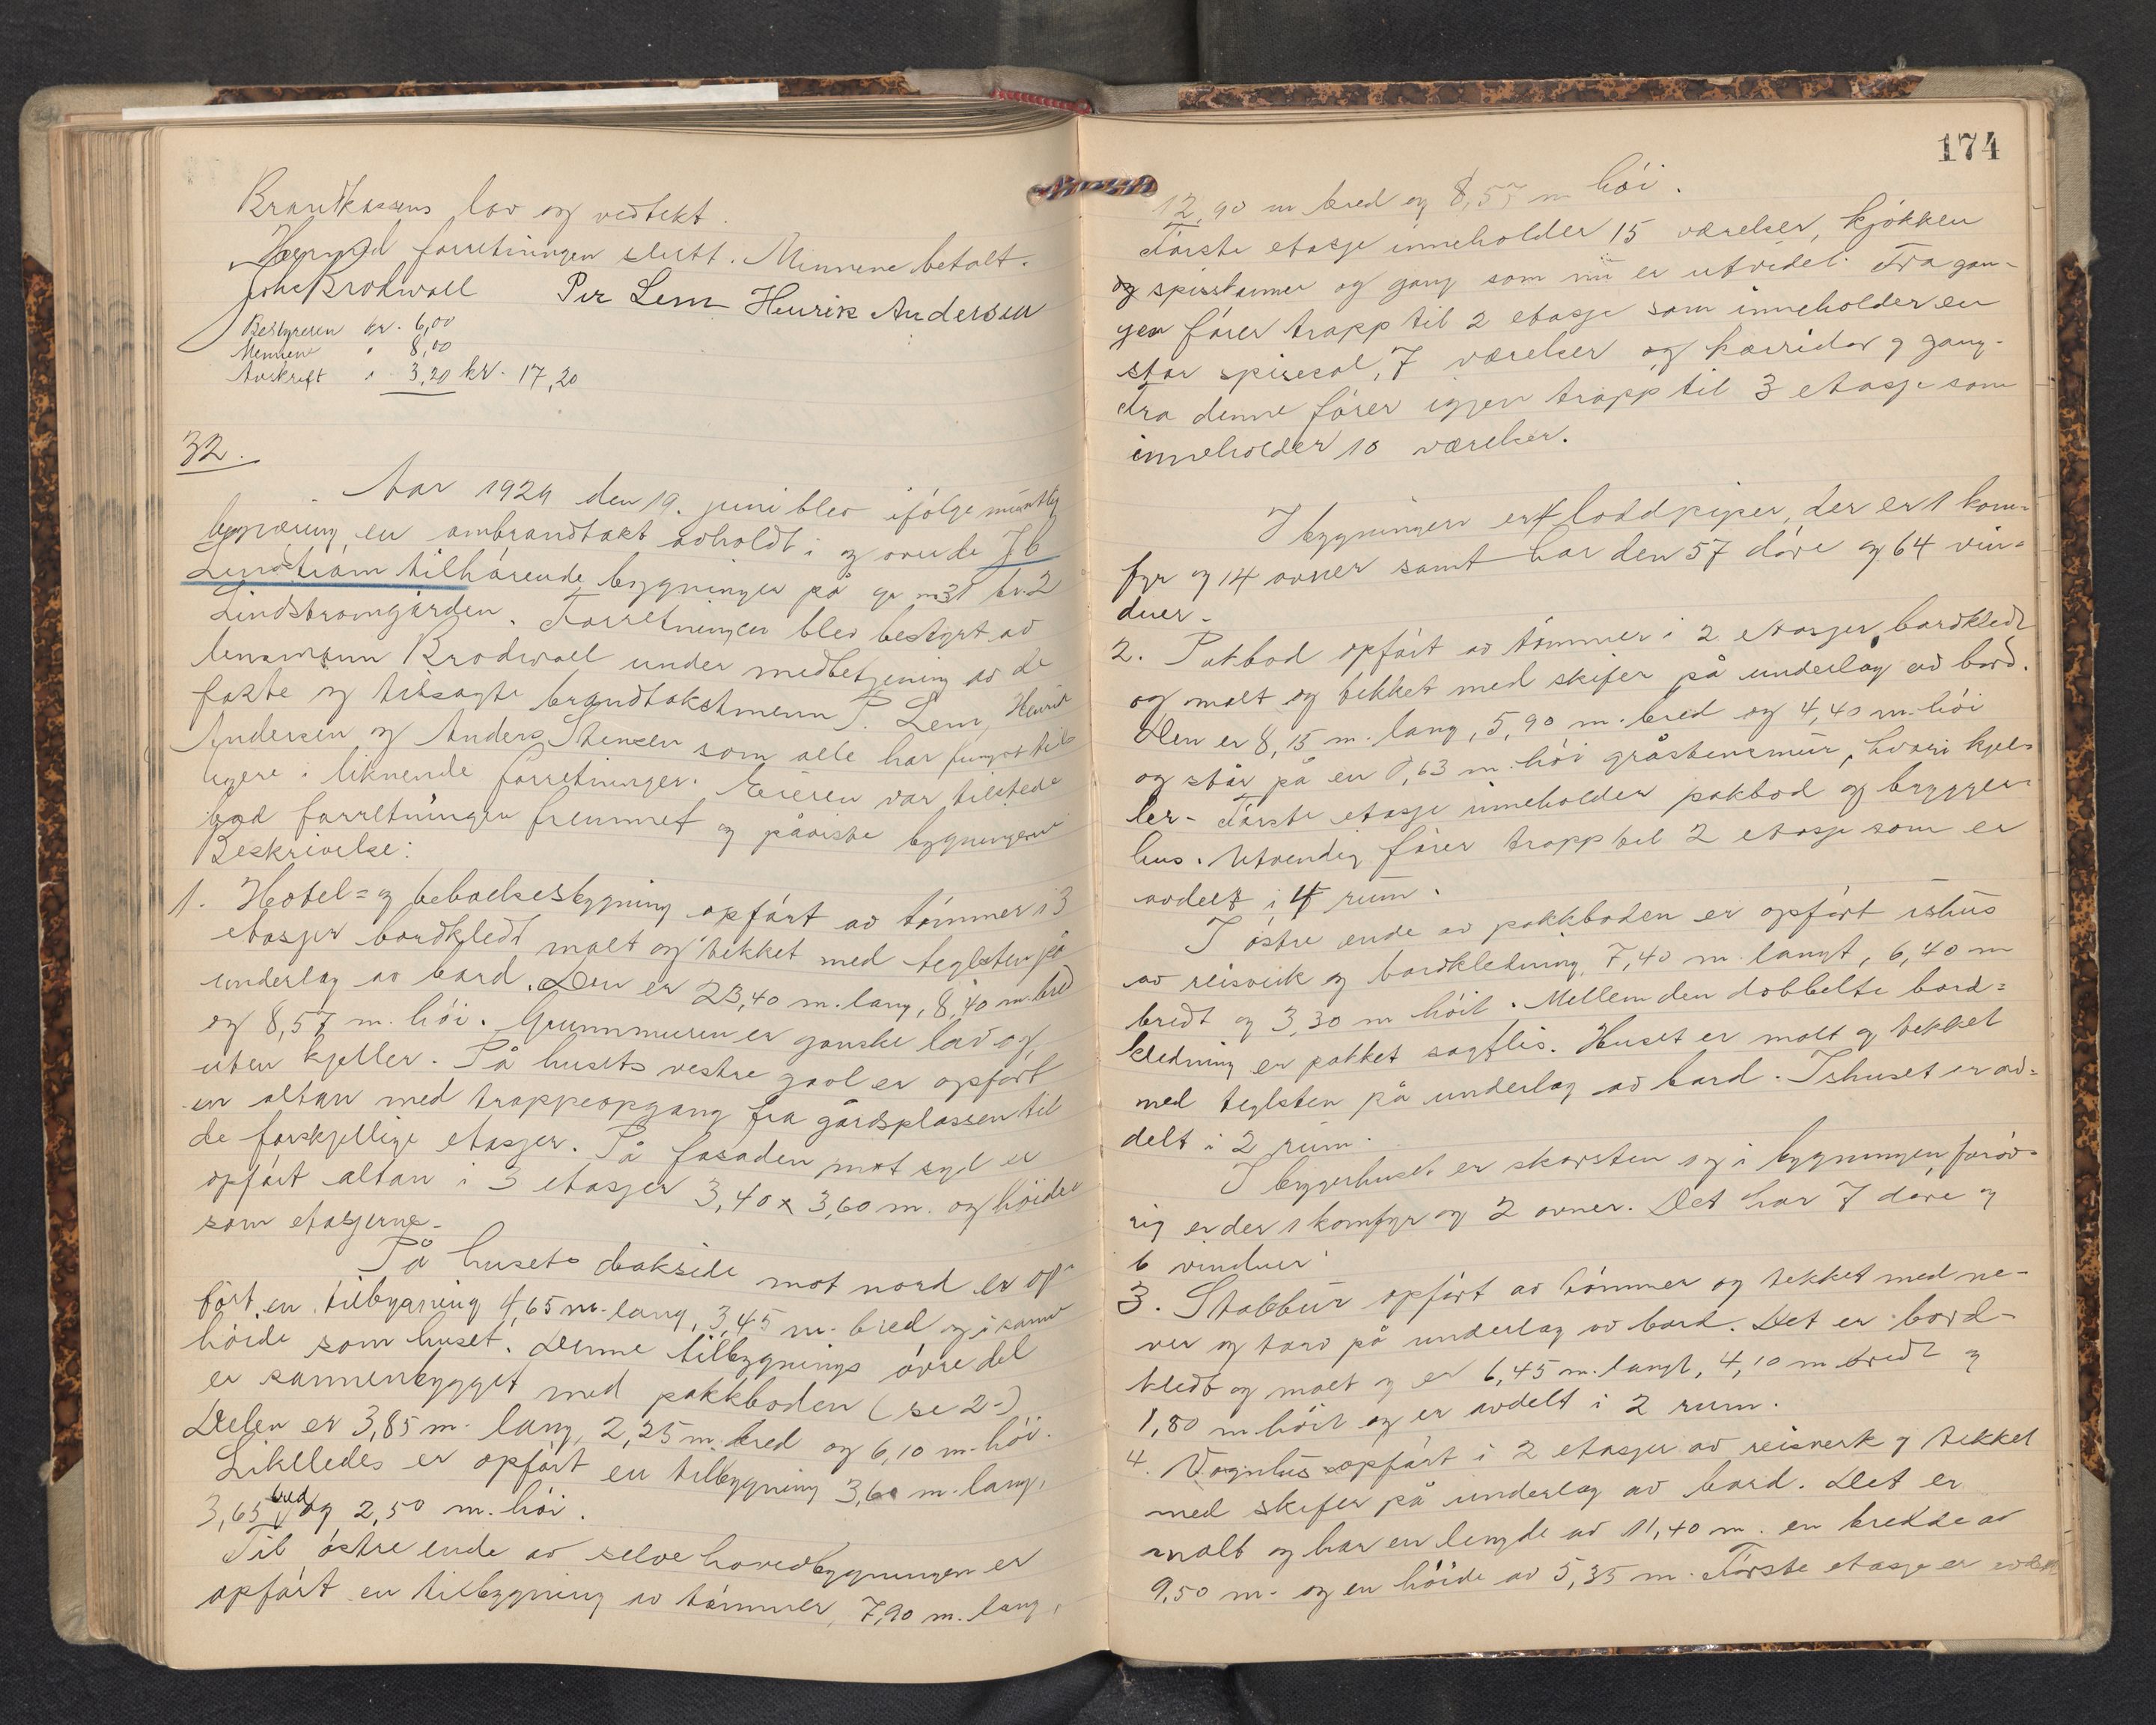 Brandkassens lov og vedtekt.
Hermed forretningen slutt. Mennene betalt.
Joh. Brodwall Per Lem Henrik Andersen
Bestyreren kr. 6,00
Mennene " 8,00
Avskrift " 3,20 kr. 17,20
32.
Aar 1924 den 19. juni blev ifölge muntlig
begjæring en ombrandtakt avholdt i og over de J b
Lindström tilhörende bygninger på gr nr 31 br. 2
Lindstrømgården. Forretningen blev bestyrt av
lensmann Brodwall under medbetjening av de
faste og tilsagte brandtakstmenn P. Lem, Henrik
Andersen og Anders Stensen som alle har fungert tid-
ligere i liknende forretninger. Eieren var tilstede
bad forretningen fremmet og påviste bygningene
Beskrivelse:
1. Hotel= og beboelsesbygning opfört av tömmer i 3
etasjer bordkledt malt og tekket med teglsten på
underlag av bord. Den er 23,40 m. lang, 8,40 m. bred
og 8,57 m. höi. Grunnmuren er ganske lav og
uten kjeller. På husets vestre gavl er opfört
en altan med trappeopgang fra gårdsplassen til
de forskjellige etasjer. På fasaden mot syd er
opfört altan i 3 etasjer 3,40 x 3,60 m. og höider
som etasjerne.
På husets bakside mot nord er op-
fört en tilbygning 4,65 m. lang, 3,45 m. bred og i samme
höide som huset. Denne tilbygnings övre del
er sammenbygget med pakkboden (se 2.)
Delen er 3,85 m. lang, 2,25 m. bred og 6,10 m. höi.
Likeledes er opfört en tilbygning 3,60 m. lang,
3,65 bred og 2,50 m. höi.
Til östre ende av selve hovedbygningen er
opfört en tilbygning av tömmer, 7,90 m. lang,
174
12,90 m bred og 8,57 m höi.
Förste etasje inneholder 15 værelser, kjökken
og spiskamer og gang som nu er utvidet. Fra gan-
gen förer trapp til 2 etasje som inneholder en
stor spisesal, 7 værelser og korridor og gang.
Fra denne förer igjen trapp til 3 etasje som
inneholder 10 værelser.
I bygningen er 4 loddpiper, der er 1 kom-
fyr og 14 ovner samt har den 57 döre og 64 vin-
duer.
2. Pakbod opfört av tömmer i 2 etasjer, bordkledt
og malt og tekket med skifer på underlag av bord.
Den er 8,15 m. lang, 5,90 m. bred og 4,40 m. höi
og står på en 0,63 m. höi gråstensmur, hvori kjel-
ler. Förste etasje inneholder pakbod og brygger-
hus. Utvendig förer trapp til 2 etasje som er
avdelt i 4 rum.
I östre ende av pakkboden er opfört ishus
av reisverk og bordkledning, 7,40 m. langt, 6,40 m
bredt og 3,30 m höit. Mellem den dobbelte bord=
kledning er pakket sagflis. Huset er malt og tekket
med teglsten på underlag av bord. Ishuset er av=
delt i 2 rum.
I bryggerhuset er skorsten og i bygningen foröv-
rig er der 1 komfyr og 2 ovner. Det har 7 döre og
6 vinduer.
3. Stabbur opfört av tömmer og tekket med ne-
ver og torv på underlag av bord. Det er bord-
kledt og malt og er 6,45 m. langt, 4,10 m bredt og
1,80 m höit og er avdelt i 2 rum.
4. Vognhus opfört i 2 etasjer av reisverk og tekket
med skifer på underlag av bord. Det er
malt og har en lengde av 11,40 m. en bredde av
9,50 m. og en höide av 5,35 m. Förste etasje er avdelt